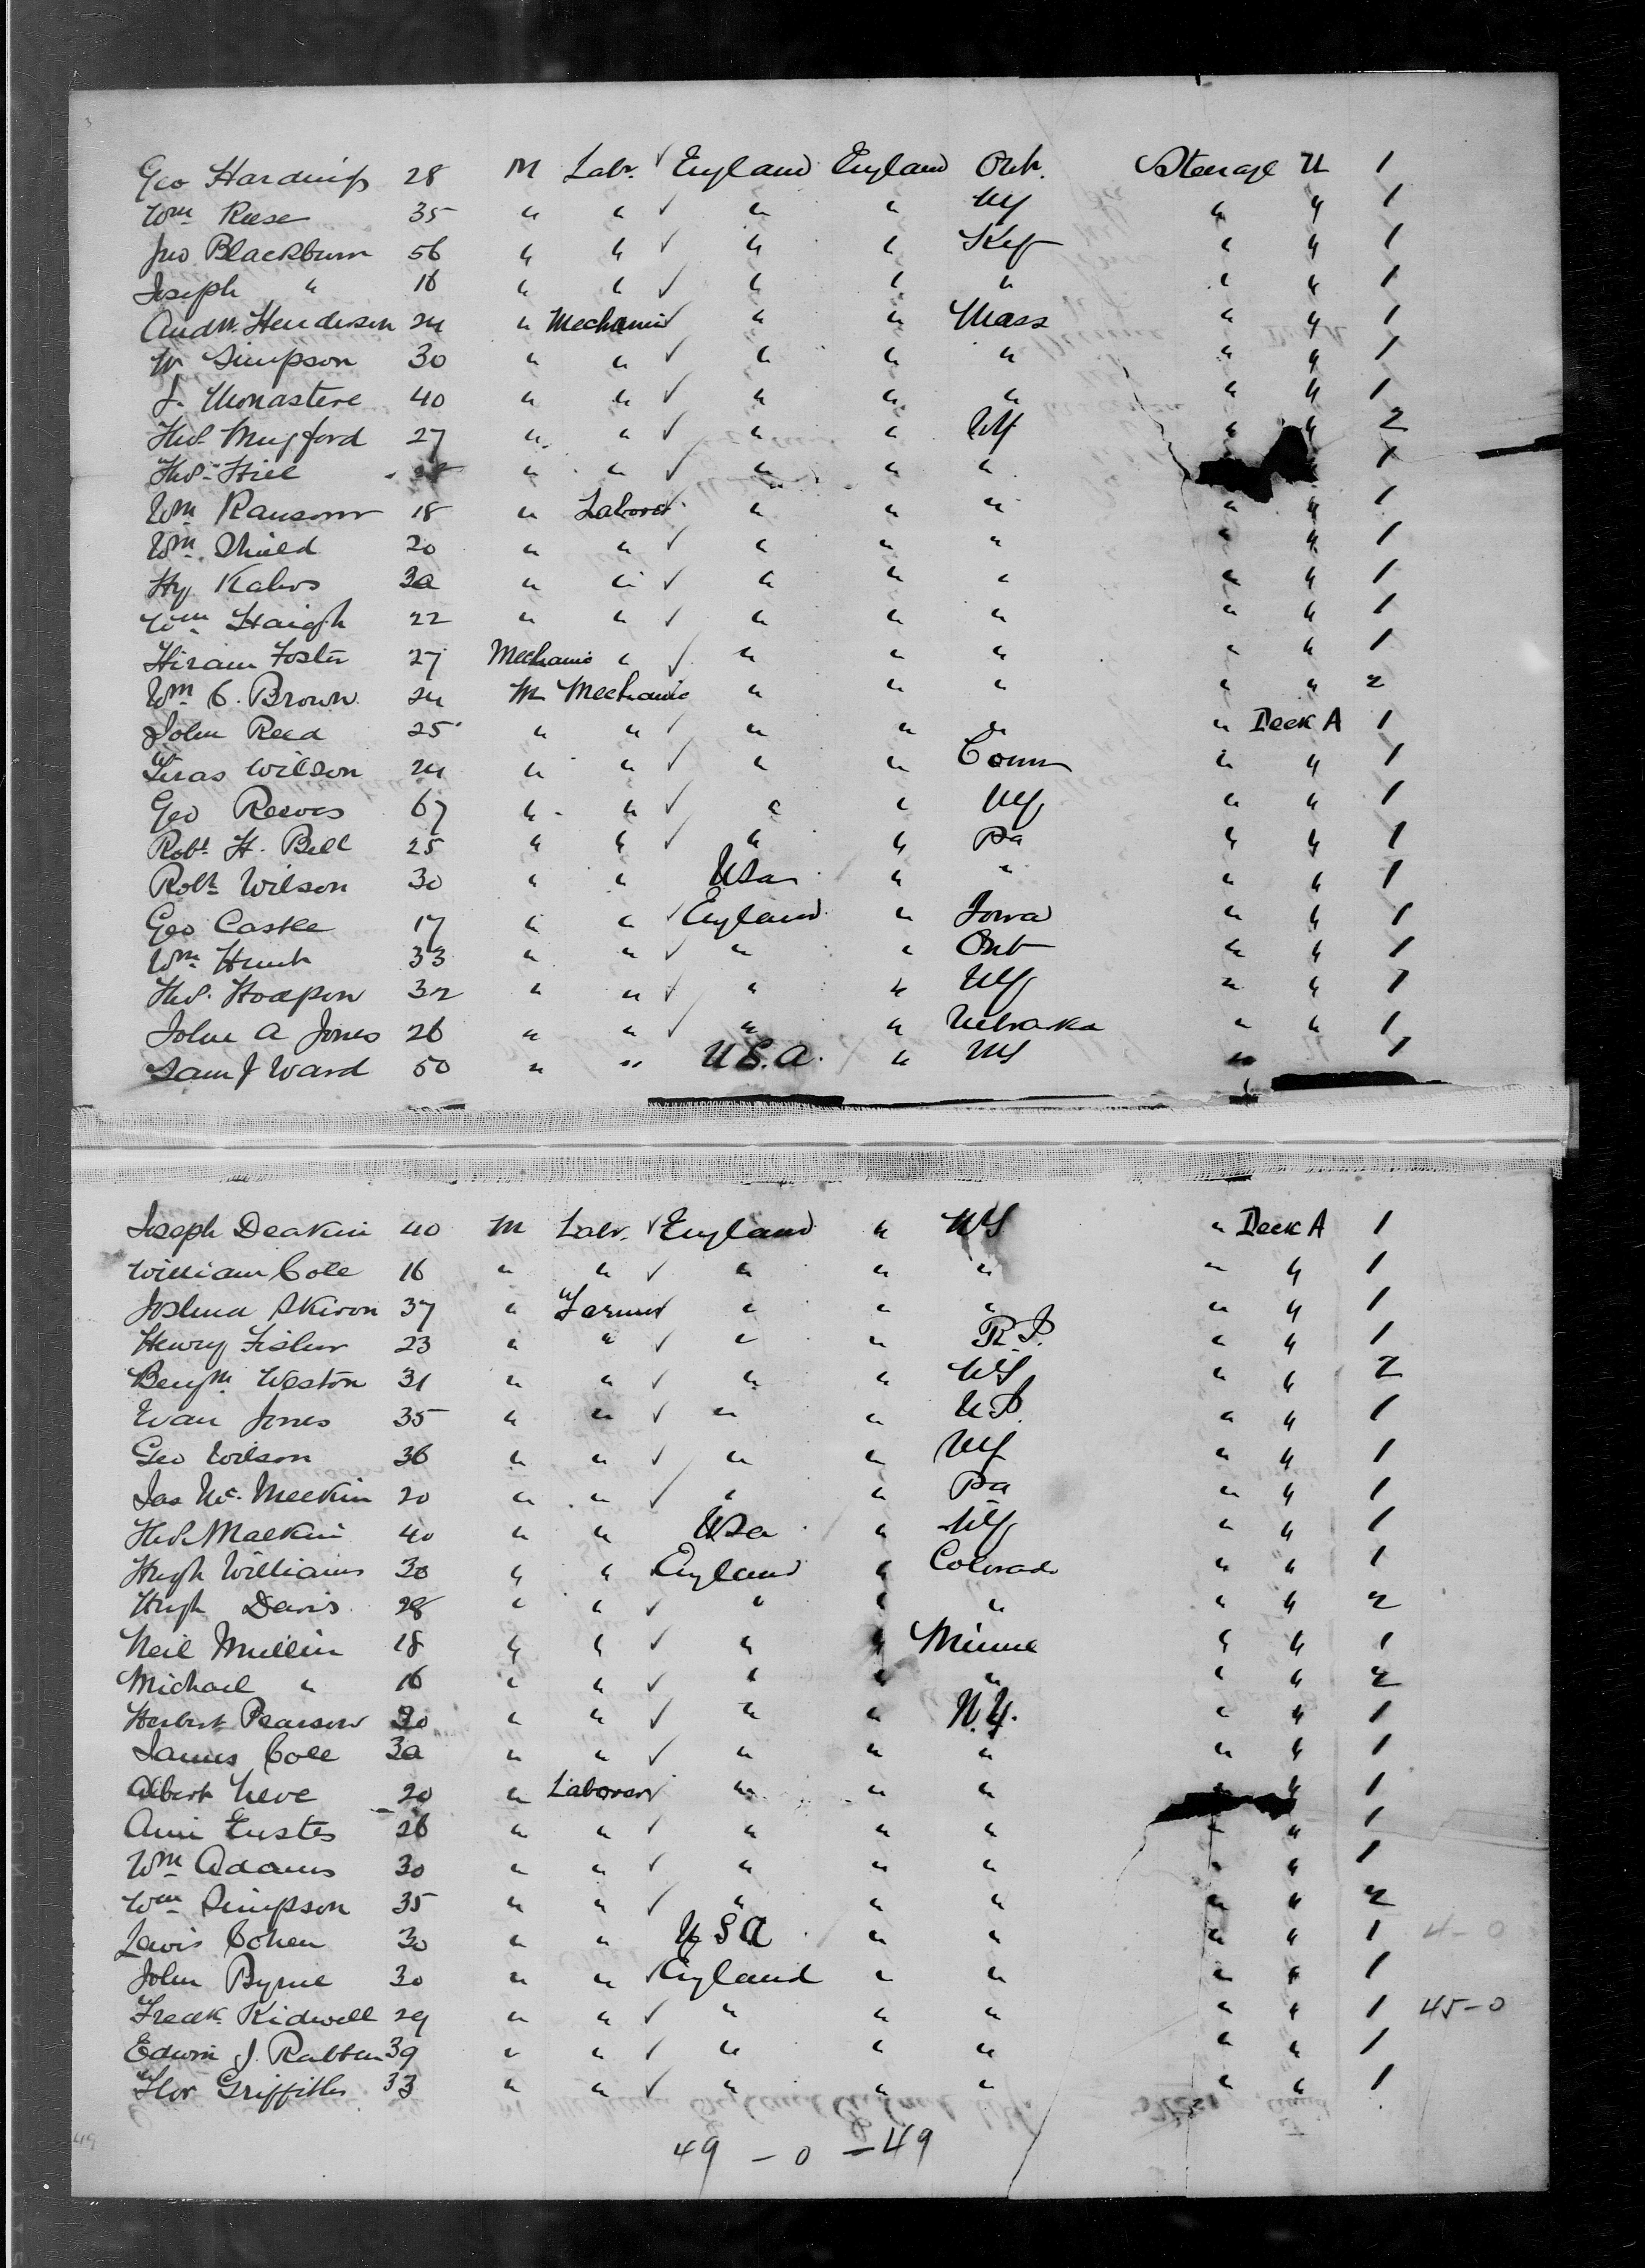 Geo Harding 28 M Labr. ✓ England England Ont. Steerage U 1
Wm Reese 35 " " ✓ " " NY " " 1
Jno Blackburn 56 " " ✓ " " Ky " " 1
Joseph " 16 " " ✓ " " " " " 1
Andw. Henderson 24 " Mechanic ✓ " " Mass " " 1
W Simpson 30 " " ✓ " " " " " 1
J. Monastere 40 " " ✓ " " " " " 1
Thos. Mugford 27 " " ✓ " " NY " " 2
Thos. Hill " " ✓ " " " 1
Wm Ransom 18 " Laborer ✓ " " " " " 1
Wm. Shield 20 " " ✓ " " " " " 1
Hy 30 " " ✓ " " " " " 1
Wm Haigh 22 " " ✓ " " " " " 1
Hiram Foster 27 Mechanic " ✓ " " " " " 1
Wm C. Brown 24 M Mechanic " " " " " 2
John Reed 25 " " ✓ " " " " Deck A 1
Wilson 24 " " ✓ " " Conn " " 1
Geo Reeves 67 " " ✓ " " NY " " 1
Robt H. Bell 25 " " ✓ " " Pa " " 1
Robt Wilson 30 " " USa " " " " 1
Geo Castle 17 " " ✓ England " Iowa " " 1
Wm Hunt 33 " " ✓ " " Ont " " 1
Thos. Hodgson 32 " " ✓ " " NY " " 1
John A Jones 26 " " ✓ " " Nebraska " " 1
Sam J Ward 50 " " U.S.A. " NY " 1
Joseph Deakin 40 M Labr. ✓ England " NY " Deck A 1
William Cole 16 " " ✓ " " " " " 1
Joshua Skiron 37 " Farmer ✓ " " " " " 1
Henry Fisher 23 " " ✓ " " R.I. " " 1
Benjm. Weston 31 " " ✓ " " NY " " 2
Evan Jones 35 " " ✓ " " " " 1
Geo Wilson 36 " " ✓ " " NY " " 1
Jas Mc. Meekin 20 " " ✓ " " Pa " " 1
Thos. Maekin 40 " " USa " NY " " 1
Hugh Williams 30 " " England " Colorado " " 1
Hugh Davis 28 " " ✓ " " " " " 2
Neil Mullin 18 " " ✓ " " Minne " " 1
Michael " 16 " " ✓ " " " " " 2
Herbert Pearson 30 " " ✓ " " N.Y. " " 1
James Cole 30 " " ✓ " " " " " 1
Albert Neve 20 " Laborer ✓ " " " " " 1
Ami Eustes 26 " " ✓ " " " " " 1
Wm Adams 30 " " ✓ " " " " " 1
Wm Simpson 35 " " ✓ " " " " " 2
Lewis Cohen 30 " " USA " " " " 1 4-0
John Byrne 30 " " ✓ England " " " " 1
Fredk. Kidwell 29 " " ✓ " " " " " 1 45-0
Edwin J. Rabben 39 " " ✓ " " " " " 1
Griffiths 33 " " ✓ " " " " " 1
49 - 0 - 49
49